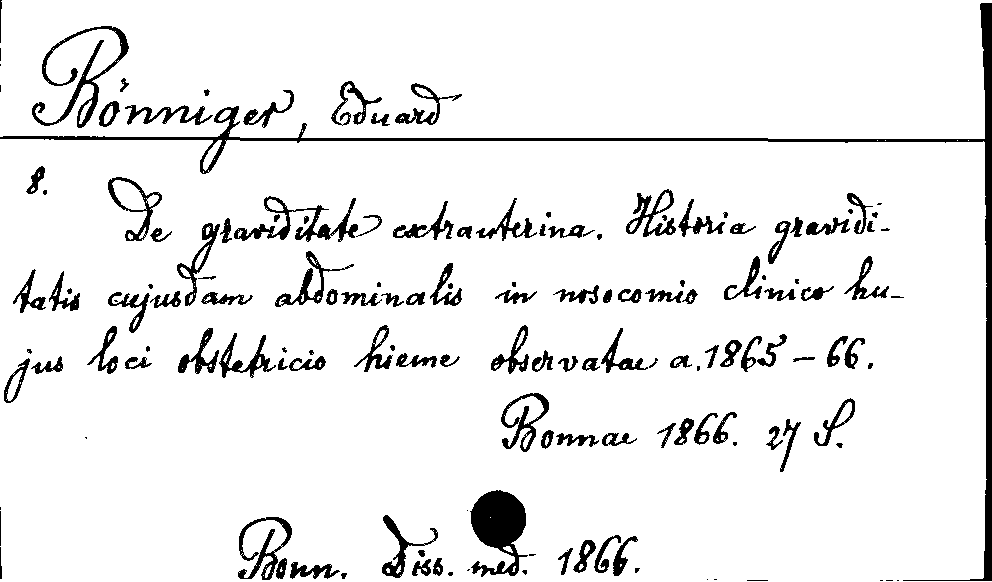 Bönniger, Eduard
8.
De graviditate extrauterina. Historia gravidi-
tatis cujusdam abdominalis in nosocomio clinico hu-
jus loci obstetricio hieme observatae a. 1865-66.
Bonnae 1866. 27 S.
Bonn. Diss. med. 1866.